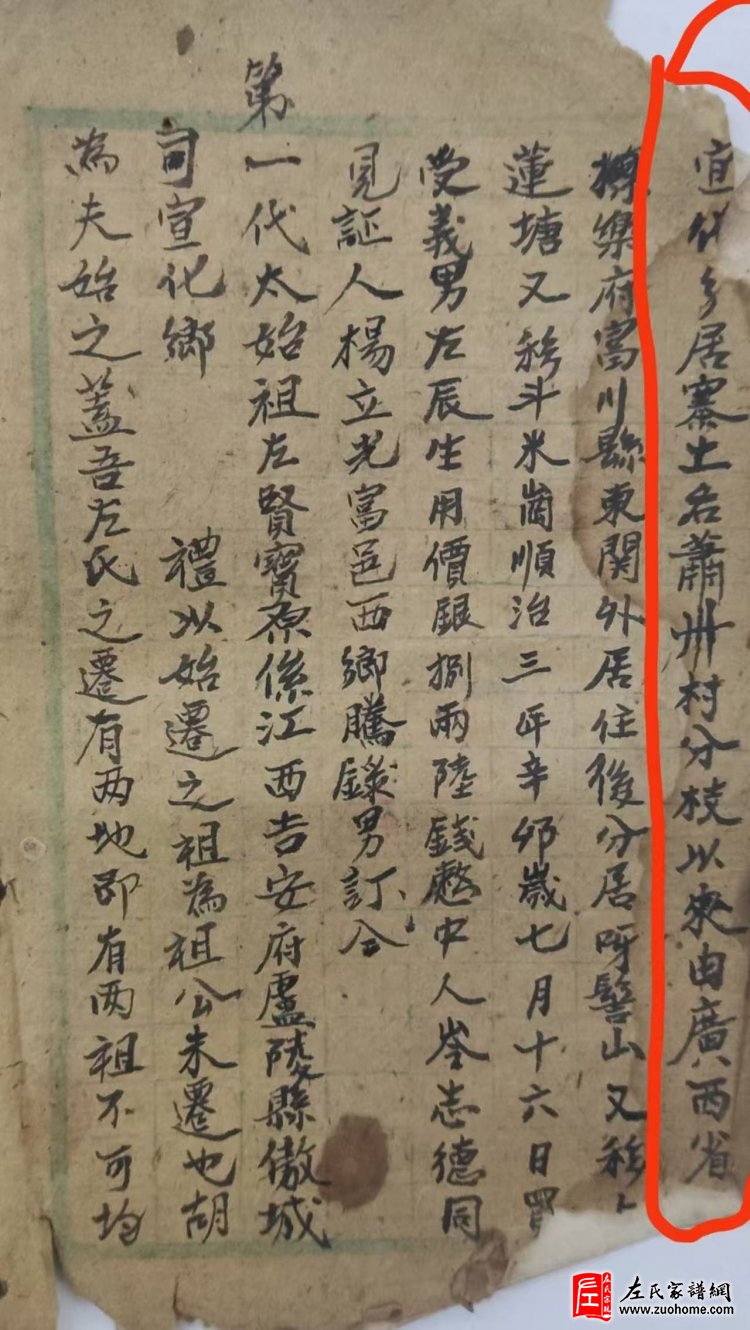 宜化乡居寨土名蕭州村分枝以來由廣西省
樂府富川縣東関外居住後分居呀髻山又移上
蓮塘又移斗米崗順治三年辛卯歲七月十六日買
受義男左辰生用價銀捌兩陸錢憑中人岑志德同
見証人楊立光富邑西鄉騰錄男訂仝
第一代太始祖左賢寳原係江西吉安府盧陵縣傲城
司宣化鄉 禮以始遷之祖為祖公未遷也胡
為夫始之蓋吾左氏之遷有两地即有两祖不可均
左氏宗親
左氏家譜網
www.zuohome.com